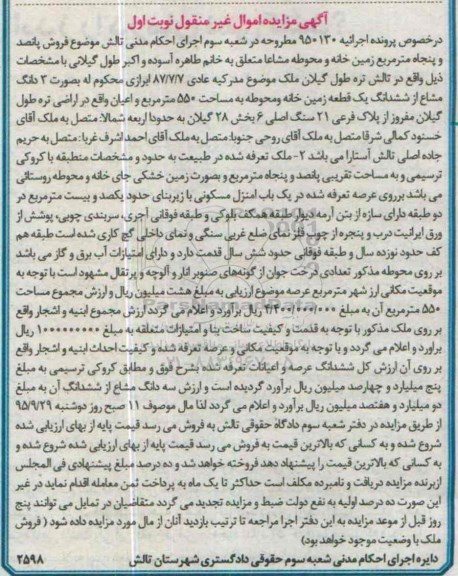 آگهی مزایده اموال غیر منقول نوبت اول
درخصوص پرونده اجرائیه ۹۵۰۱۳۰ مطروحه در شعبه سوم اجرای احکام مدنی تالش موضوع فروش پانصد
و پنجاه مترمربع زمین خانه و محوطه مشاعا متعلق به خانم طاهره آسوده و اکبر طول گیلانی با مشخصات
ذیل واقع در تالش تره طول گیلان ملک موضوع مدرکیه عادی ۸۷/۷/۷ ابرازی محکوم له بصورت ۳ دانگ
مشاع از ششدانگ یک قطعه زمین خانه ومحوطه به مساحت ۵۵۰ مترمربع و اعیان واقع در اراضی تره طول
گیلان مفروز از پلاک فرعی ۲۱ سنگ اصلی ۶ بخش ۲۸ گیلان به حدودا اربعه شمالا: متصل به ملک آقای
خسنود کمالی شرقا متصل به ملک آقای روحی جنوبا: متصل به ملک آقای احمد اشرف غربا: متصل به حریم
جاده اصلی تالش آستارا می باشد ۲- ملک تعرفه شده در طبیعت به حدود و مشخصات منطبقه با کروکی
ترسیمی و به مساحت تقریبی پانصد و پنجاه مترمربع و بصورت زمین خشکی جای خانه و محوطه روستائی
می باشد برروی عرصه تعرفه شده در یک باب امنزل مسکونی با زیربنای حدود یکصد و بیست مترمربع در
دو طبقه دارای سازه از بتن آرمه دیوار طبقه همکف بلوکی و طبقه فوقانی آجری، سربندی چوبی، پوشش از
ورق ایرانیت درب و پنجره از چوب فلز نمای ضلع غربی سنگی و نمای داخلی گچ کاری شده است طبقه هم
کف حدود نوزده سال و طبقه فوقانی حدود شش سال قدمت دارد و دارای امتیازات آب برق و گاز می باشد
بر روی محوطه مذکور تعدادی درخت جوان از گونه‌های صنوبر انار و آلوچه و پرتقال مشهود است با توجه به
موقعیت مکانی ارز شهر مترمربع عرصه موضوع ارزیابی به مبلغ هشت میلیون ریال و ارزش مجموع مساحت
۵۵۰ مترمربع آن به مبلغ ریال برآورد و اعلام می گردد ارزش مجموع ابنیه و اشجار واقع
بر روی ملک مذکور با توجه به قدمت و کیفیت ساخت بنا و امتیازات متعلقه به مبلغ ۱۰۰۰۰۰۰۰۰۰ ریال
براورد و اعلام می گردد و با توجه به موقعیت مکانی و عرصه تعرفه شده و کیفیت احداث ابنیه و اشجار واقع
بر روی آن ارزش کل ششدانگ عرصه و اعیانات تعرفه شده بشرح فوق و مطابق کروکی ترسیمی به مبلغ
پنج میلیارد و چهارصد میلیون ریال برآورد گردیده است و ارزش سه دانگ مشاع از ششدانگ آن به مبلغ
دو میلیارد و هفتصد میلیون ریال برآورد و اعلام می گردد لذا مال موصوف ۱۱ صبح روز دوشنبه ۹۵/۹/۲۹
از طریق مزایده در دفتر شعبه سوم دادگاه حقوقی تالش به فروش می رسد قیمت پایه از بهای ارزیابی شده
شروع شده و به کسانی که بالاترین قیمت به فروش می رسد قیمت پایه از بهای ارزیابی شده شروع شده و
به کسانی که بالاترین قیمت را پیشنهاد دهد فروخته خواهد شد و ده درصد مبلغ پیشنهادی فی المجلس
ازبرنده مزایده دریافت و نامبرده مکلف است حداکثر تا یک ماه به پرداخت ثمن معامله اقدام نماید در غیر
این صورت ده درصد اولیه به نفع دولت ضبط و مزایده تجدید می گردد متقاضیان در تمایل می توانند پنج
روز قبل از موعد مزایده به این دفتر اجرا مراجعه تا ترتیب بازدید آنان از مال مورد مزایده داده شود ( فروش
ملک با وضعیت موجود خواهد بود)
دایره اجرای احکام مدنی شعبه سوم حقوقی دادگستری شهرستان تالش ۲۵۹۸